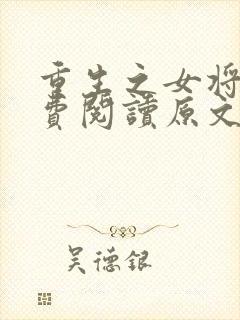 重生之女将
费阅读原文
吴德银